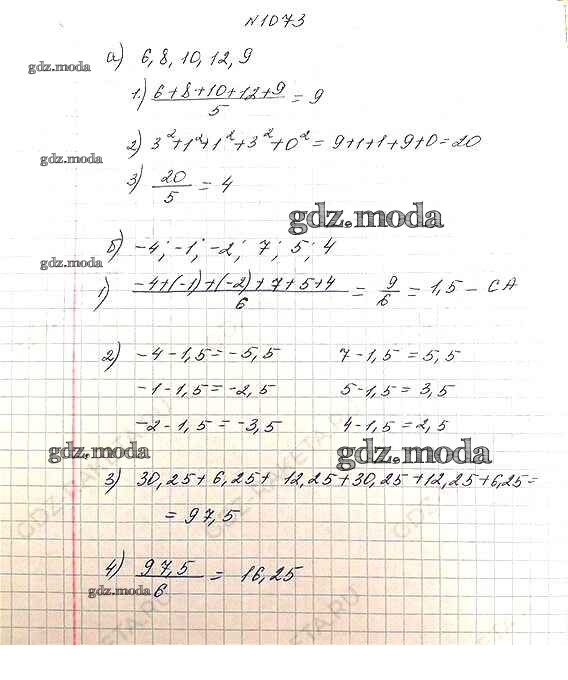 №1073
а) 6, 8, 10, 12, 9
gdz.moda
1) (6+8+10+12+9)/5 = 9
2) 3²+1²+1²+3²+0² = 9+1+1+9+0=20
gdz.moda
3) 20/5 = 4
gdz.moda
б) -4; -1; -2; 7; 5; 4
gdz.moda
1) (-4+(-1)+(-2)+7+5+4)/6 = 9/6 = 1,5 - СА
2) -4-1,5=-5,5 7-1,5=5,5
-1-1,5=-2,5 5-1,5=3,5
-2-1,5=-3,5 4-1,5=2,5
gdz.moda gdz.moda
3) 30,25+6,25+ 12,25+30,25+12,25+6,25=
= 97,5
4) 97,5/6 = 16,25
gdz.moda